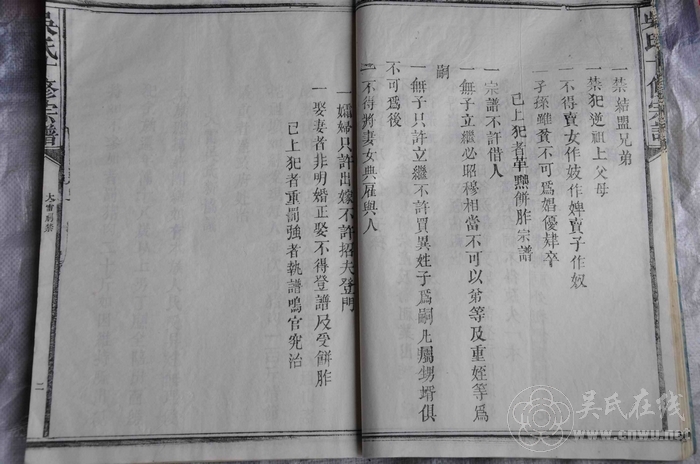 一禁結盟兄弟
一禁犯逆祖上父母
一不得賣女作妓作婢賣子作奴
一子孫雖貧不可爲娼優肄卒
已上犯者革黜餅胙宗譜
一宗譜不許借人
一無子立繼必昭穆相當不可以弟等及重姪等爲
嗣
一無子只許立繼不許買異姓子爲嗣凡屬甥壻俱
不可爲後
一不得將妻女典雇與人
一孀婦只許出嫁不許招夫登門
一娶妻者非明婚正娶不得登譜及受餅胙
已上犯者重罰強者執譜鳴官究治
吳氏十修宗譜
大雷刷禁
二
吳氏十修宗譜
吴氏在线
www.cnwu.net